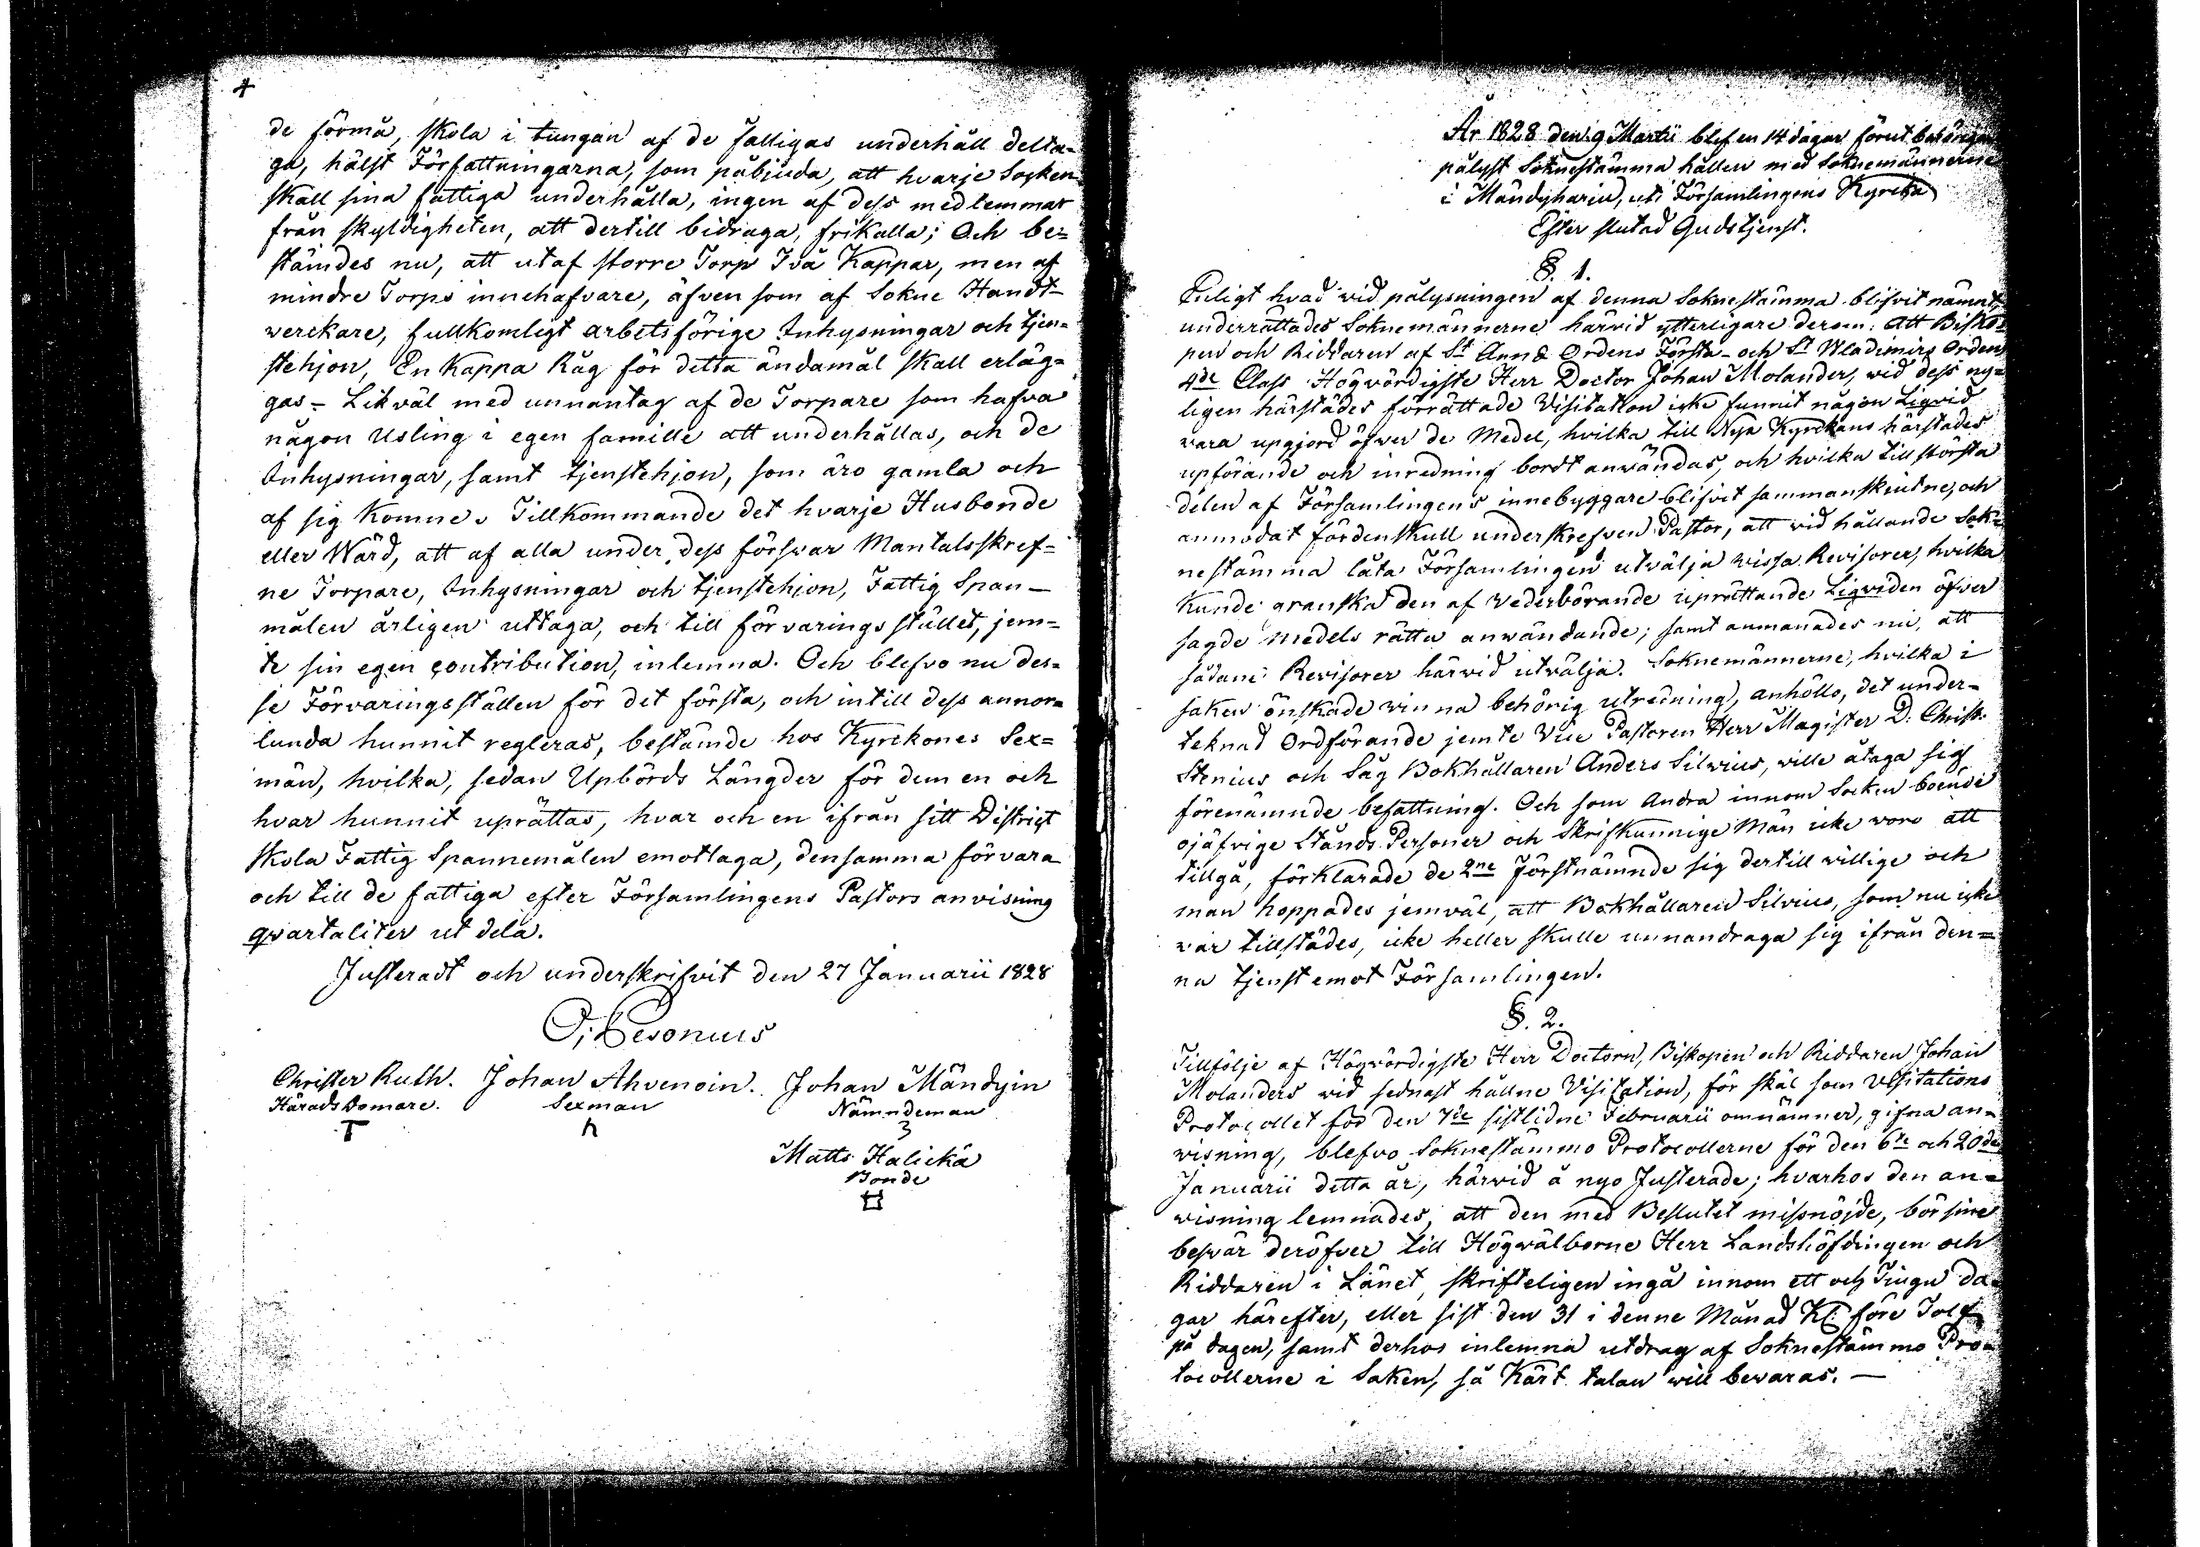 4
de förmå, skola i tungan af de fattigas underhåll delta-
ga, hälst Författningarna, som påbjuda, att hvarje Socken
skall sina fattiga underhålla, ingen af dess medlemmar
från skyldigheten, att dertill bidraga, frikalla; Och be=
stämdes nu, att utaf storre Torp Två Kappar, men af
mindre Torps innehafvare, äfven som af Sokne Handt-
verckare, fullkomligt arbetsförige Inhysningar och tjen=
stehjon, En Kappa Råg för detta ändamål skall erläg=
gas - Likväl med unnantag af de Torpare som hafva
någon Usling i egen famille att underhållas, och de
Inhysningar, samt tjenstehjon, som äro gamla och
af sig Komne. Tillkommande det hvarje Husbonde
eller Wärd, att af alla under dess försvar Mantalsskref=
ne Torpare, Inhysningar och tjenstehjon, Fattig Span-
målen årligen uttaga, och till förvaringsstället, jem=
te sin egen contribution, inlemna. Och blefvo nu des=
se Förvaringsställen för det första, och intill dess annor=
lunda hunnit regleras, bestämde hos Kyrckones Sex=
män, hvilka, sedan Upbörds Längder för dem en och
hvar hunnit uprättas, hvar och en ifrån sitt District
skola Fattig Spannemålen emottaga, densamma förvara
och till de fattiga efter Församlingens Pastors anvisning
qvartaliter utdela.
Justeradt och underskrifvit den 27 Januarii 1828
O; Cesonius
Christer Ruth. Johan Ahvenoin. Johan Mändyin
Härads Domare. Sexman Nämndeman
Matts Halickä
Bonde
År 1828 den 9 Martii blef en 14 dagar förut behörigen
pålyst Soknestämma hållen med Soknemännerne
i Mändyharju, uti Församlingens Kyrcka
Efter slutad Gudstjenst.
§. 1.
Enligt hvad wid pålysningen af denna Soknestämma blifvit nämnt,
underrättades Soknemännerne härwid ytterligare derom: att Bisko=
pen och Riddaren af St Annæ Ordens Första- och St Wladimirs Ordens
4de Class Högvördigste Herr Doctor Johan Molander, wid dess ny=
ligen härstädes förrättade Visitation icke funnit någon Liqvid
vara upgjord öfver de Medel, hvilka till Nya Kyrckans härstädes
upförande och inredning bordt anwändas, och hvilka till största
delen af Församlingens innebyggare blifvit sammanskutne, och
anmodat fördenskull underskrefven Pastor, att wid hållande Sok=
nestämma låta Församlingen utvälja wissa Revisorer, hvilka
Kunde granska den af Vederbörande uprättande Liqviden öfver
sagde medels rätta anwändande; samt anmanades nu, att
sådane Revisorer härwid utvälja. Soknemännerne, hvilka i
saken önskade winna behörig utredning, anhöllo, det under=
teknad Ordförande jemte Vice Pastoren Herr Magister D. Christ.
Stenius och Såg Bokhållaren Anders Silvius, wille åtaga sig
förenämnde befattning. Och som Andra innom Socken boende
ojäfvige Stånds Personer och Skrifkunnige Män icke woro att
tillgå, förklarade de 2ne Förstnämnde sig dertill willige och
man hoppades jemväl, att Bokhållaren Silvius, som nu icke
var tillstädes, icke heller skulle unnandraga sig ifrån den=
na tjenst emot Församlingen.
§. 2.
Tillfölje af Högwördigste Herr Doctorn, Biskopen och Riddaren Johan
Molanders wid sednast hållne Visitation, för skäl som Visitations
Protocollet för den 7de sistlidne Februarii omnämner, gifna an=
wisning, blefvo Soknestämmo Protocollerne för den 6te och 20de
Januarii detta år, härwid å nyo Justerade; hvarhos den an=
wisning lemnades, att den med Beslutet missnöjde, bör sine
besvär deröfver till Högwälborne Herr Landshöfdingen och
Riddaren i Länet, skrifteligen ingå innom ett och Tiugu da=
gar härefter, eller sist den 31 i denne Månad Kl: före Tolf
på dagen, samt derhos inlemna utdrag af Soknestämmo Pro=
tocollerne i Saken, så Kärt talan will bevaras. —